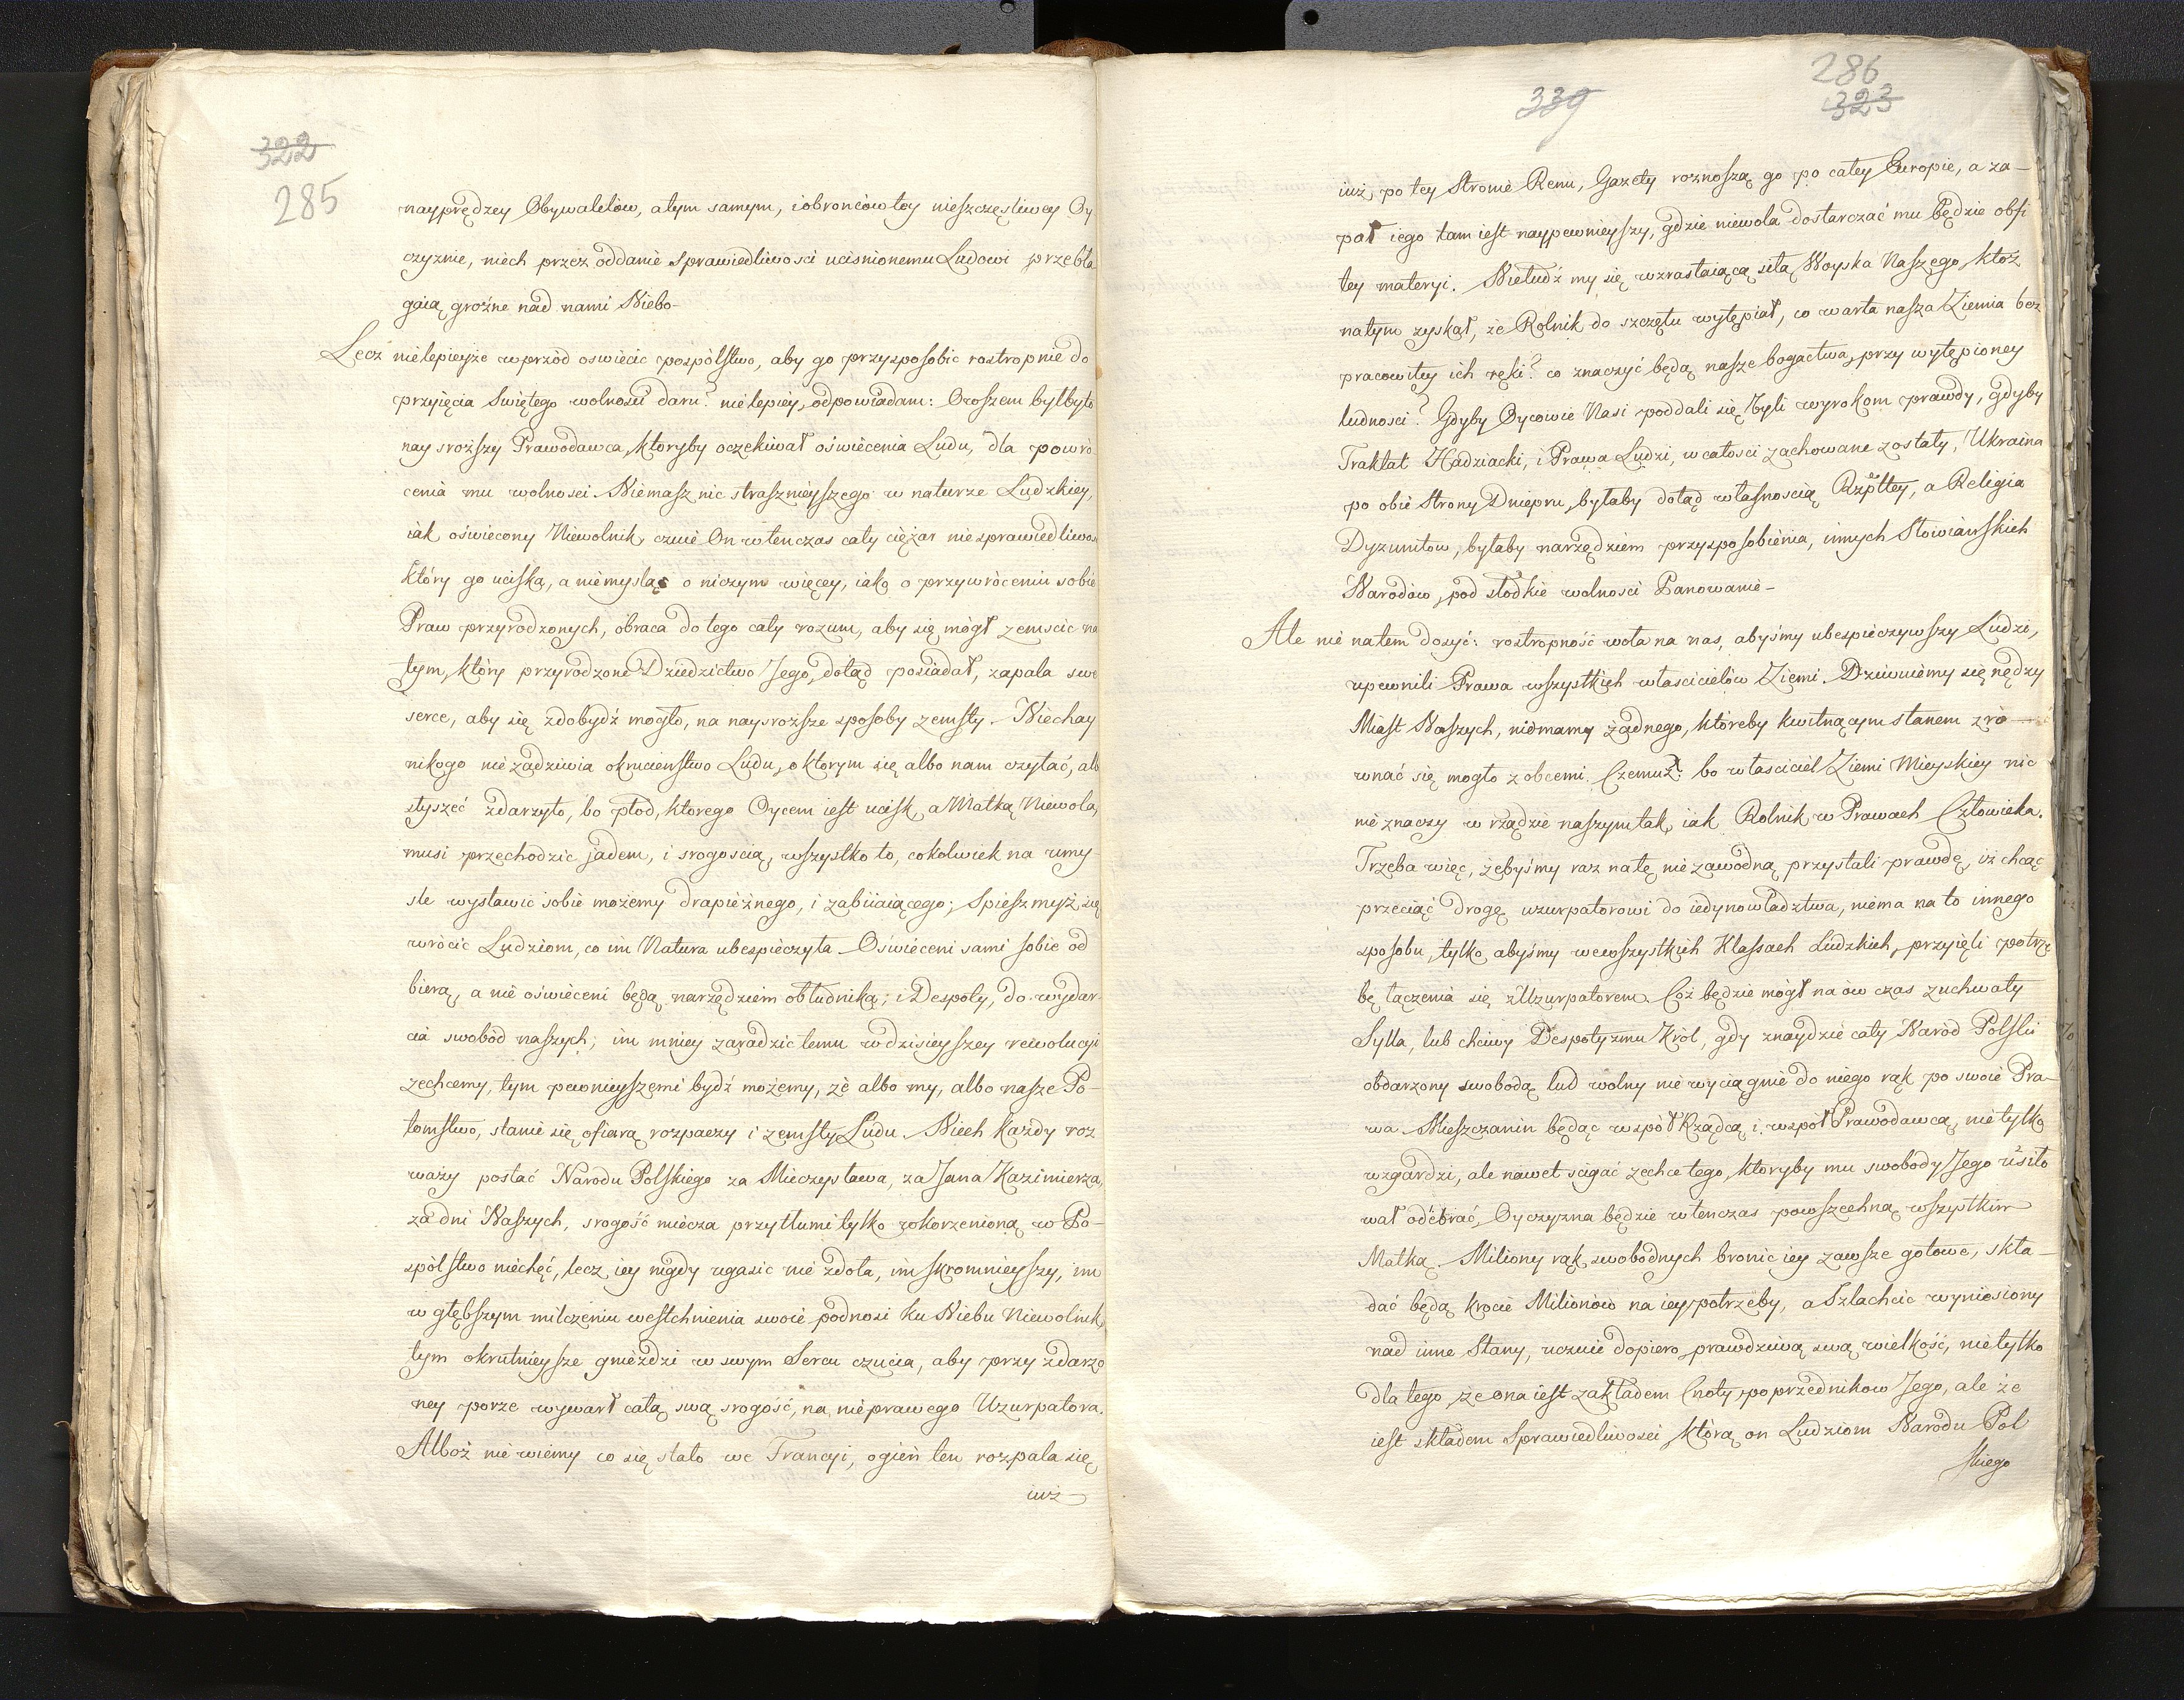 322
285
nayprędzey Obywatelów, atym samym, i obrońców tey nieszczęsliwey Oy
czyznie, niech przez oddanie sprawiedliwosci ucisnionemu Ludowi przebła
gaią groźne nad nami Niebo-
Lecz nielepieyże wprzód oswiecic pospólstwo, aby go przysposobic rostropnie do
przyięcia Swiętego wolnosci daru? nielepiey, odpowiadam: Owszem byłbyto
naysroższy Prawodawca, ktoryby oczekiwał oświecenia Ludu, dla powró
cenia mu wolnosci. Niemasz nic strasznieyszego w naturze Ludzkiey,
iak oświecony Niewolnik, czuie On wtenczas cały ciężar niesprawiedliwos
który go uciska, a niemysląc o niczym więcey, iako o przywróceniu sobie
Praw przyrodzonych, obraca do tego cały rozum, aby się mógł zemscic na
tym, który przyrodzone Dziedzictwo Jego, dotąd posiadał, zapala swe
serce, aby się zdobydź mogło, na naysroższe sposoby zemsty. Niechay
nikogo niezadziwia okrucieństwo Ludu, o ktorym się albo nam czytać, alb
słyszeć zdarzyło, bo płod, ktorego Oycem iest ucisk, a Matką Niewola,
musi przechodzic jadem, i srogoscią, wszystko to, cokolwiek na umy-
sle wystawic sobie możemy drapieżnego, i zabiiaiącego; Spieszmyż się
wrócic Ludziom, co im Natura ubespieczyła. Oświeceni sami sobie od
bierą, a nie oświeceni będą narzędziem obłudnika, i Despoty, do wydar-
cia swobód naszych; im mniey zaradzic temu w dzisieyszey rewolucyi
zechcemy, tym pewnieyszemi bydź możemy, że albo my, albo nasze Po-
tomstwo, stanie się ofiarą rozpaczy i zemsty Ludu. Niech każdy roz
waży postać Narodu Polskiego za Mieczysława, za Jana Kazimierza,
za dni Naszych, srogość miecza przytłumi tylko wkorzenioną w Po-
spólstwo niechęć, lecz iey nigdy ugasic nie zdoła, im skromnieyszy, im
w głębszym milczeniu westchnienia swoie podnosi ku Niebu Niewolnik,
tym okrutnieysze gnieździ w swym Sercu czucia, aby przy zdarzo
ney porze wywarł całą swą srogość, na nieprawego Uzurpatora.
Alboż nie wiemy co się stało we Francyi, ogień ten rozpala się,
iuż
339
286
323
iuż, po tey Stronie Renu, Gazety roznoszą go po całey Europie, a za-
pał iego tam iest naypewnieyszy, gdzie niewola dostarczać mu będzie obfi
tey materyi. Niełudź my się, wzrastaiącą siłą Woyska Naszego, ktoż
natym zyskał, że Rolnik do szczętu wytępiał, co warta nasza Ziemia bez
pracowitey ich ręki? co znaczyć będą nasze bogactwa, przy wytępioney
ludnosci? Gdyby Oycowie Nasi poddali się byli wyrokom prawdy, gdyby
Traktat Hadziacki, i Prawa Ludzi, w całosci zachowane zostały, Ukraina
po obie Strony Dniepru, byłaby dotąd własnoscią Rzpltey, a Religia
Dyzunitow, byłaby narzędziem przysposobienia, innych Słowiańskich
Narodów, pod słodkie wolnosci Panowanie-
Ale nie natem dosyć: rostropność woła na nas, abyśmy ubespieczywszy Ludzi,
upewnili Prawa wszystkich właścicielów Ziemi. Dziwuiemy się nędzy
Miast Naszych, niemamy żadnego, któreby kwitnącym stanem zró-
wnać się mogło z obcemi. Czemuż: bo właściciel Ziemi Mieyskiey nic
nie znaczy w rządzie naszym tak, iak Rolnik w Prawach Człowieka.
Trzeba więc, żebyśmy raz natę niezawodną przystali prawdę, iż chcąc
przeciąć drogę uzurpatorowi do iedynowładztwa, niema na to innego
sposobu, tylko abyśmy wewszystkich Klassach Ludzkich, przyięli potrze
bę łączenia się z Uzurpatorem. Cóż będzie mógł na ów czas zuchwały
Sylla, lub chciwy Despotyzmu Król, gdy znaydzie cały Naród Polski
obdarzony swobodą, lud wolny nie wyciągnie do niego rąk po swoie Pra-
wa. Mieszczanin będąc współ Rządcą i współ Prawodawcą, nietylko
wzgardzi, ale nawet scigać zechce tego, ktoryby mu swobody Jego usiło
wał odebrać, Oyczyzna będzie wtenczas powszechną wszystkim
Matką. Miliony rąk swobodnych bronic iey zawsze gotowe, skła-
dać będą krocie Milionow na iey potrzeby, a Szlachcic wyniesiony
nad inne Stany, uczuie dopiero prawdziwą swą wielkość, nietylko
dla tego, że ona iest zakładem Cnoty poprzednikow Jego, ale że
iest składem Sprawiedliwosci, którą on Ludziom Narodu Pol
skiego